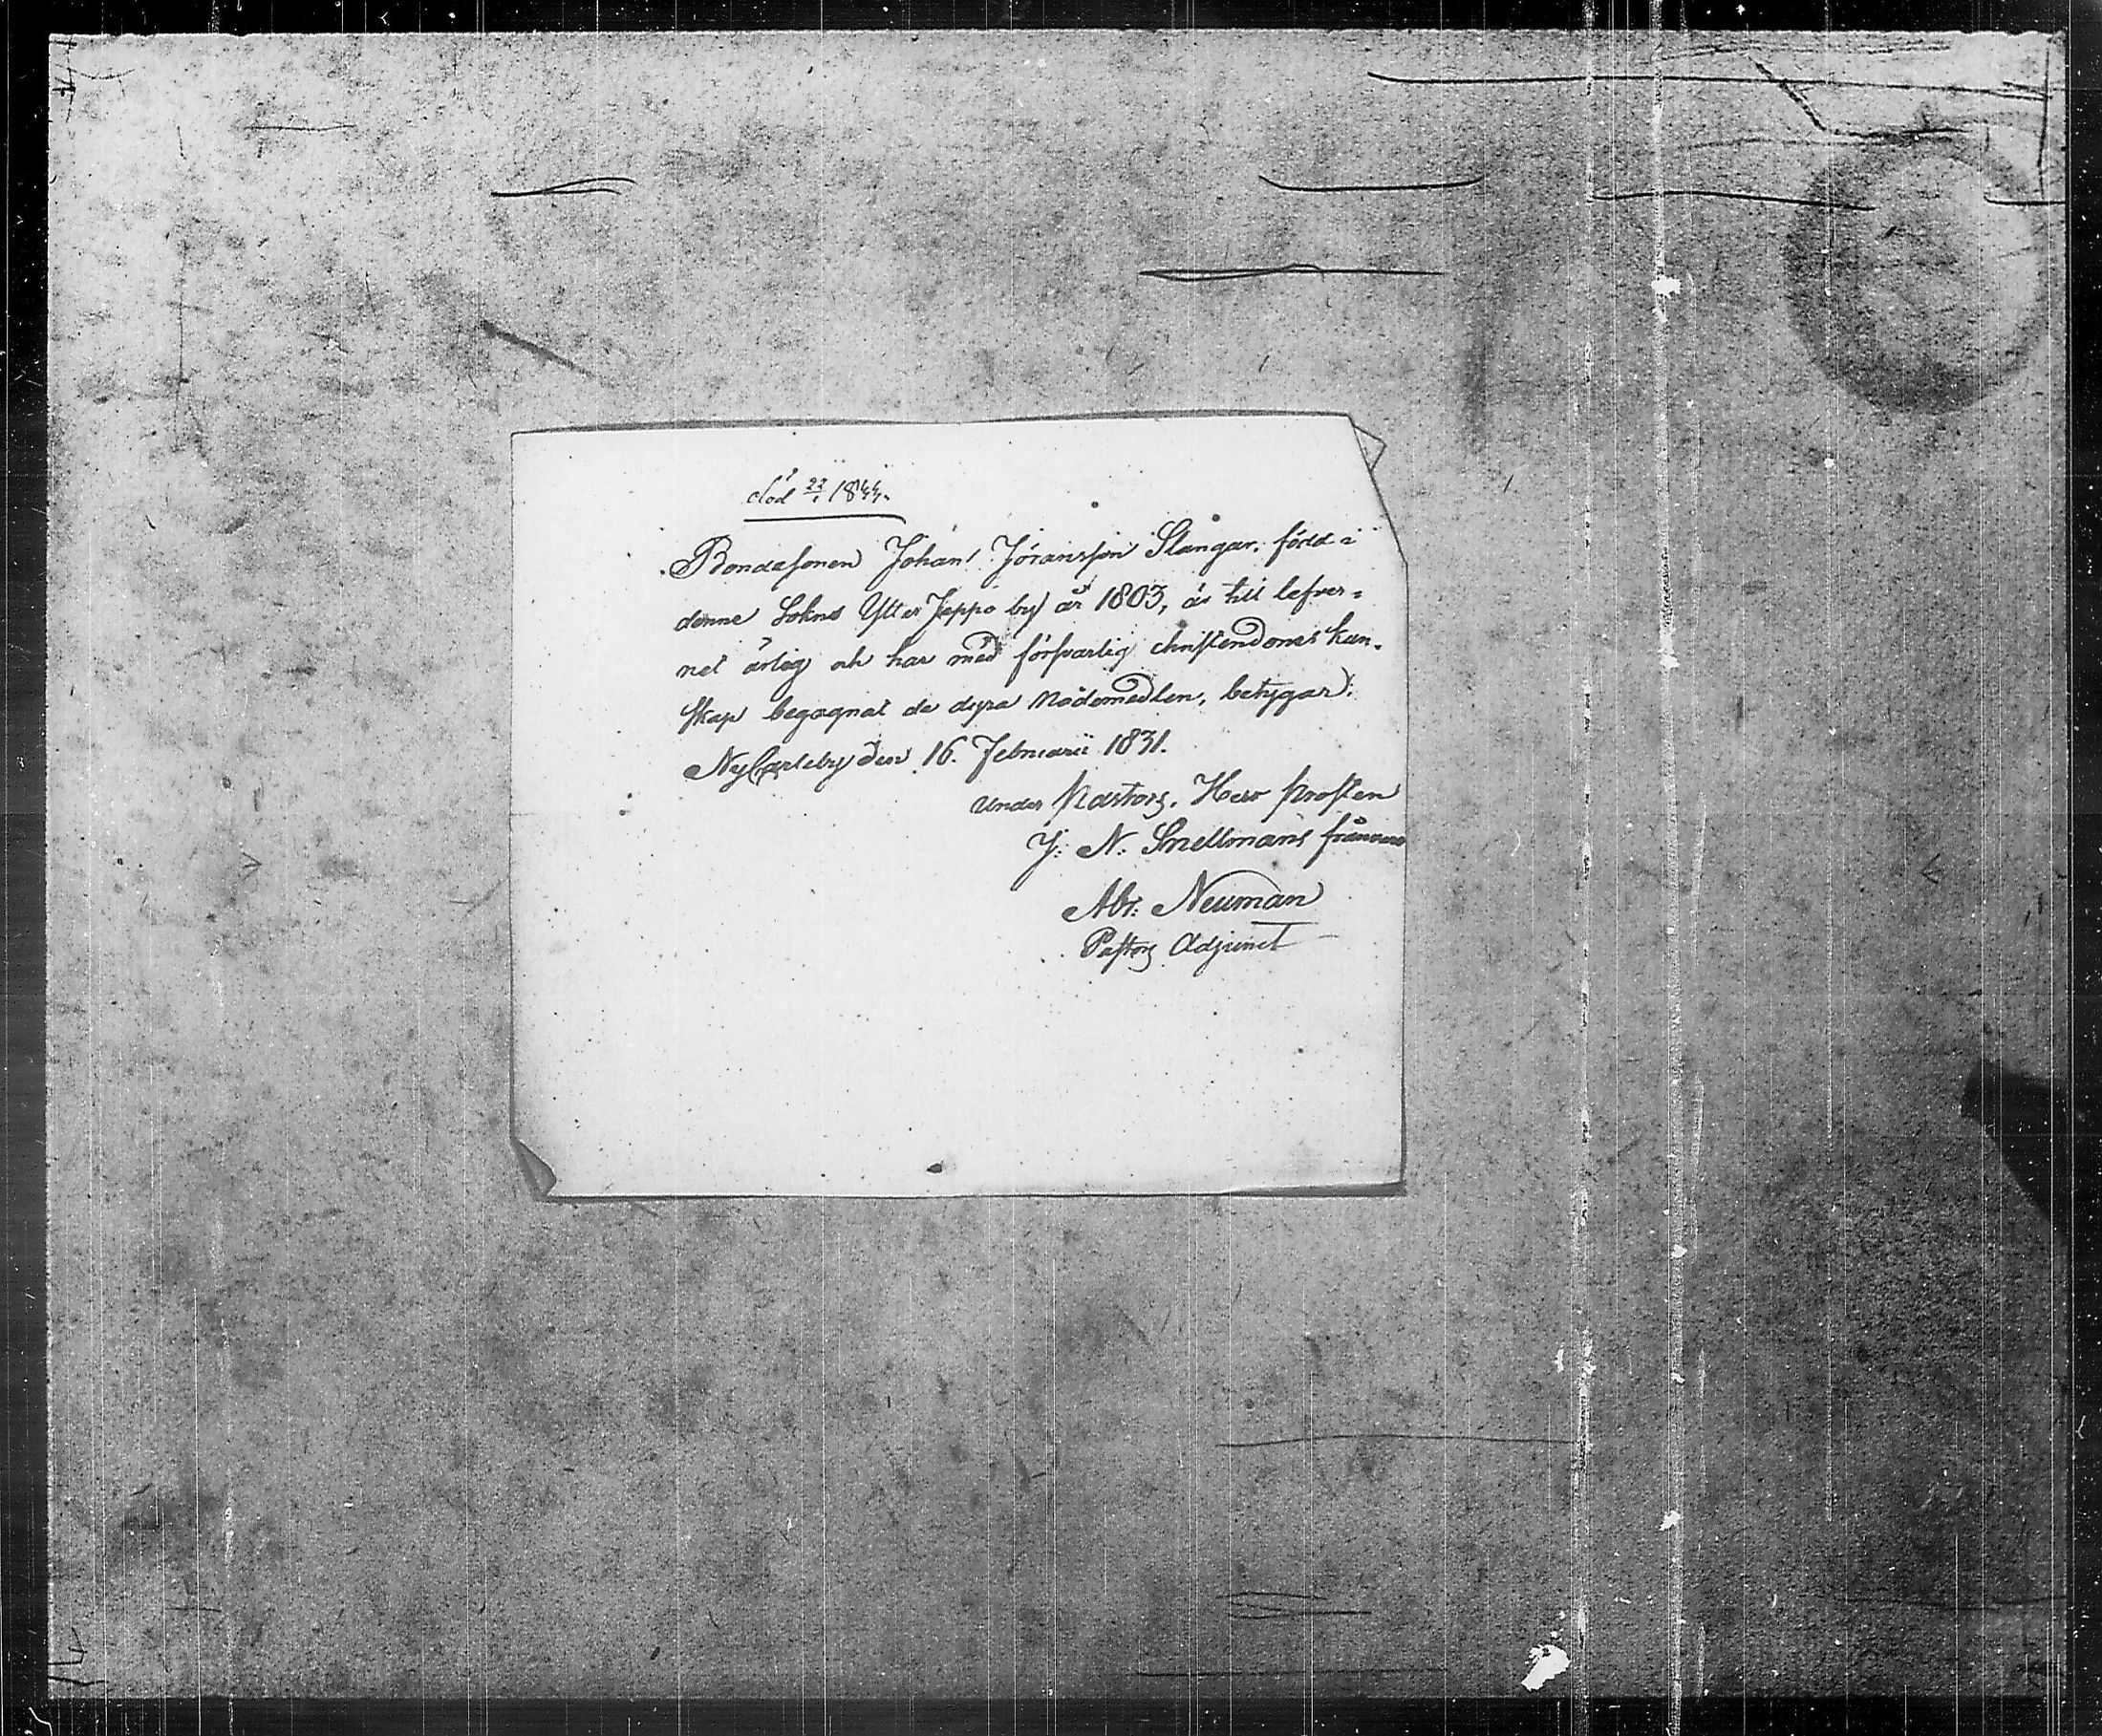 död 22/1 1844.
Bondasonen Johan Jöransson Slangar, född i
denne Sokns Ytter Jeppo by år 1803, är till lefver-
net ärlig och har med försvarlig christendoms kun-
skap begagnat de dyra Nådemedlen, betygar.
NyCarleby den 16. Februarii 1831.
under Pastors, Herr Prosten
J: N: Snellmans frånvaro
Abr: Neuman
Pastors Adjunct